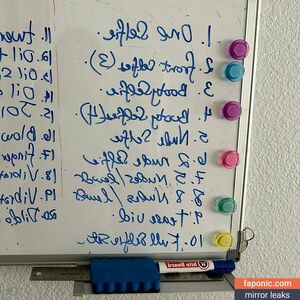 1. One Selfie.
2 front selfies (3)
3. Booty Selfie
4. Booty Selfies (4)
5. Nude Selfie
6. 2 nude selfie
7. 5 Nudes/
8 8 Nudes/
9. Tease vid.
10. Full
11.
12. Dil
13. Dil
14. Dil
15. JOI
16. Blow
17. finger
18. Vibrat
19. Vibrat
20. Dildo
faponic.com
mirror leaks